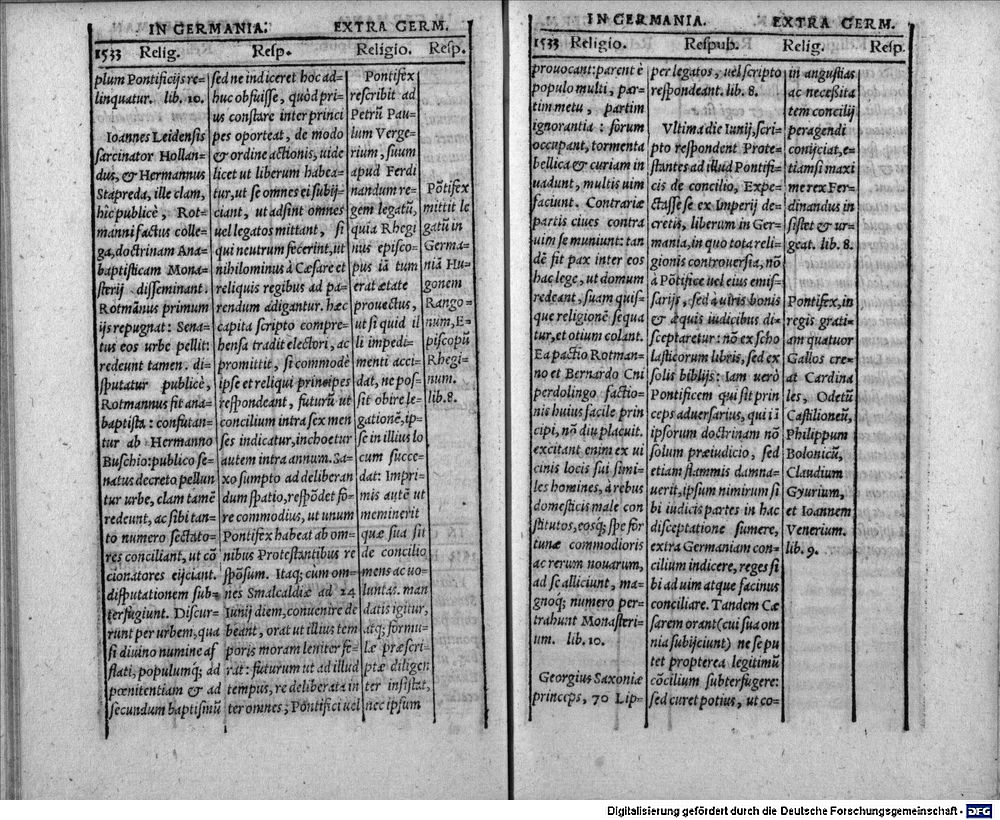 IN GERMANIA.
EXTRA GERM.
1533 Relig.
Resp.
Religio.
Resp.
plum Pontificijs re-
linquatur. lib. 10.
Ioannes Leidensis
sarcinator Hollan-
dus, & Hermannus
Stapreda, ille clam,
hic publicè, Rot-
manni factus colle-
ga, doctrinam Ana-
baptisticam Mona-
sterij disseminant.
Rotmãnus primum
ijs repugnat: Sena-
tus eos urbe pellit:
redeunt tamen. di-
sputatur publicè,
Rotmannus fit ana-
baptista: confutan-
tur ab Hermanno
Buschio: publico se-
natus decreto pellun
tur urbe, clam tamẽ
redeunt, ac sibi tan-
to numero sectato-
res conciliant, ut cõ
cionatores eijciant.
disputationem sub-
terfugiunt. Discur-
runt per urbem, qua
si diuino numine af
flati, populumq; ad
pœnitentiam & ad
secundum baptismũ
sed ne indiceret hoc ad-
huc obfuisse, quòd pri-
us constare inter princi
pes oporteat, de modo
& ordine actionis, uide
licet ut liberum habea-
tur, ut se omnes ei subij-
ciant, ut adsint omnes
uel legatos mittant, si
qui neutrum fecerint, ut
nihilominus à Cæsare et
reliquis regibus ad pa-
rendum adigantur. hæc
capita scripto compre-
hensa tradit electori, ac
promittit, si commodè
ipse et reliqui principes
respondeant, futurũ ut
concilium intra sex men
ses indicatur, inchoetur
autem intra annum. Sa-
xo sumpto ad deliberan
dum spatio, respõdet fo-
re commodius, ut unum
Pontifex habeat ab om-
nibus Protestantibus re
spõsum. Itaq; cum om-
nes Smalcaldiæ ad 24
Iunij diem, conuenire de
beant, orat ut illius tem
poris moram leniter fe-
rat: futurum ut ad illud
tempus, re deliberata in
ter omnes; Pontifici uel
Pontifex
rescribit ad
Petrũ Pau-
lum Verge-
rium, suum
apud Ferdi
nandum re-
gem legatũ,
quia Rhegi
nus episco-
pus iã tum
erat ætate
prouectus,
ut si quid il
li impedi-
menti acci-
dat, ne pos-
sit obire le-
gationẽ, ip-
se in illius lo
cum succe-
dat: Impri-
mis autẽ ut
meminerit
quæ sua sit
de concilio
mens ac uo-
luntas. man
datis igitur,
atq; formu-
læ præscri-
ptæ diligen
ter insistat,
nec ipsum
Põtifex
mittit le
gatũ in
Germa-
niã Hu-
gonem
Rango-
num, E-
piscopũ
Rhegi-
num.
lib. 8.
IN GERMANIA.
EXTRA GERM.
1533 Religio.
Respub.
Relig.
Resp.
prouocant: parent è
populo multi, par-
tim metu, partim
ignorantia: forum
occupant, tormenta
bellica & curiam in
uadunt, multis uim
faciunt. Contrariæ
partis ciues contra
uim se muniunt: tan
dẽ fit pax inter eos
hac lege, ut domum
redeant, suam quis-
que religionẽ sequa
tur, et otium colant.
Ea pactio Rotman-
no et Bernardo Cni
perdolingo factio-
nis huius facile prin
cipi, nõ diu placuit.
excitant enim ex ui
cinis locis sui simi-
les homines, à rebus
domesticis male con
stitutos, eosq; spe for
tunæ commodioris
ac rerum nouarum,
ad se alliciunt, ma-
gnoq; numero per-
trahunt Monasteri-
um. lib. 10.
Georgius Saxoniæ
princeps, 70 Lip-
per legatos, uel scripto
respondeant. lib. 8.
Vltima die Iunij, scri-
pto respondent Prote-
stantes ad illud Pontifi-
cis de concilio, Expe-
ctasse se ex Imperij de-
cretis, liberum in Ger-
mania, in quo tota reli-
gionis controuersia, nõ
à Põtifice uel eius emis-
sarijs, sed à uiris bonis
& æquis iudicibus di-
sceptaretur: nõ ex scho
lasticorum libris, sed ex
solis biblijs: Iam uerò
Pontificem qui sit prin
ceps aduersarius, qui iã
ipsorum doctrinam nõ
solum præiudicio, sed
etiam flammis damna-
uerit, ipsum nimirum si
bi iudicis partes in hac
disceptatione sumere,
extra Germaniam con-
cilium indicere, reges si
bi ad uim atque facinus
conciliare. Tandem Cæ
sarem orant (cui sua om
nia subijciunt) ne se pu
tet propterea legitimũ
cõcilium subterfugere:
sed curet potius, ut co-
in angustias
ac necessita
tem concilij
peragendi
conijciat, e-
tiamsi maxi
me rex Fer-
dinandus in
sistet & ur-
geat. lib. 8.
Pontifex, in
regis grati-
am quatuor
Gallos cre-
at Cardina
les, Odetũ
Castilioneũ,
Philippum
Bolonicũ,
Claudium
Gyurium,
et Ioannem
Venerium.
lib. 9.
Digitalisierung gefördert durch die Deutsche Forschungsgemeinschaft - DFG